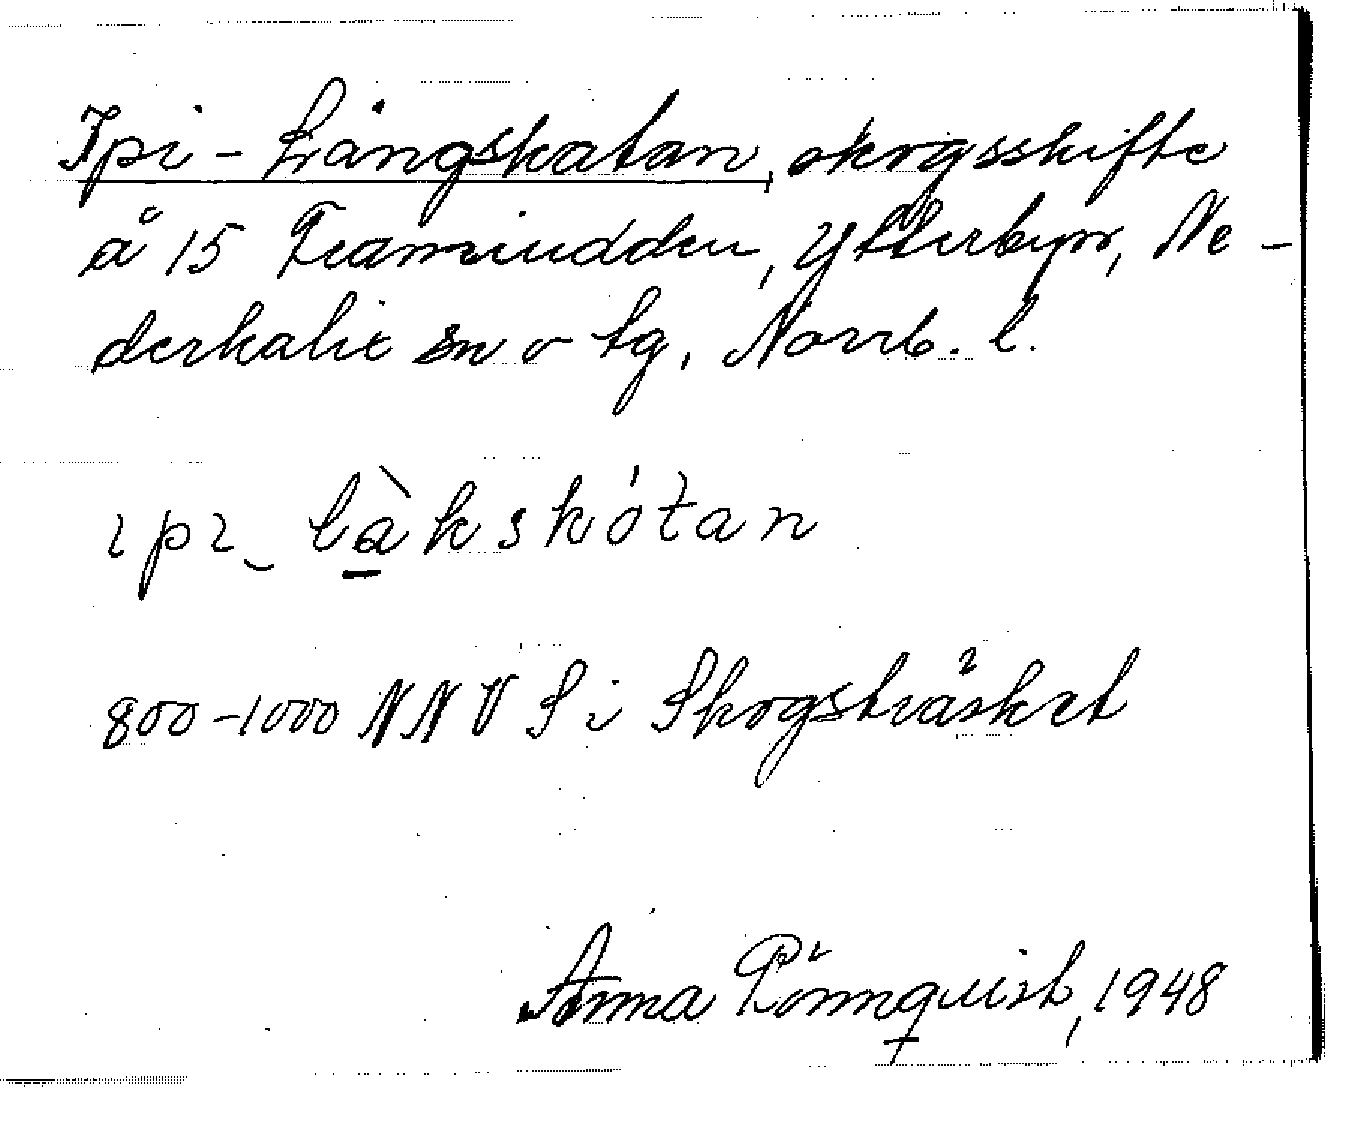 Ipi-Långskatan, skogsskifte
å 15 Framiudden, Ytterbyn, Ne-
derkalix sn o tg, Norrb. l.
ıpı‿ làkskótan
800-1000 NNV S i Skogsträsket
Anna Rönnquist, 1948